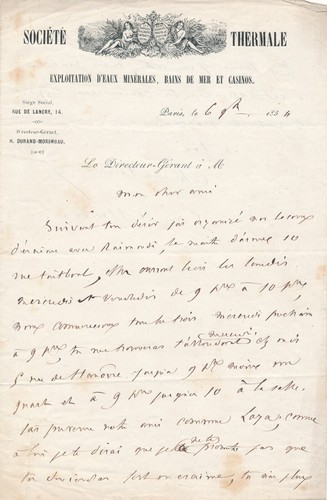 SOCIÉTÉ THERMALE
EXPLOITATION D'EAUX MINÉRALES, BAINS DE MER ET CASINOS.
Siège Social,
RUE DE LANCRY, 14.
Directeur-Gérant,
H. DURAND-MORIMBAU,
Paris, le 6 9bre 185
Le Directeur-Gérant à M
mon cher ami
Suivant ton désir j'ai organisé nos leçons
d'escrime avec Raimondi, le maître d'armes 10
rue Taitbout, elles auront lieu les lundis
mercredis et vendredis de 9 hres à 10 hres,
nous commencerons tous les trois mercredi prochain
à 9 hres, tu me trouveras mercredi chez moi
5 rue de Hanovre jusqu'à 9 hres moins un
quart et à 9 hres jusqu'à 10 à la salle.
J'ai prévenu notre ami comme
à lui je te dirai que je ne te promets pas que
tu deviendras fort en escrime, tu